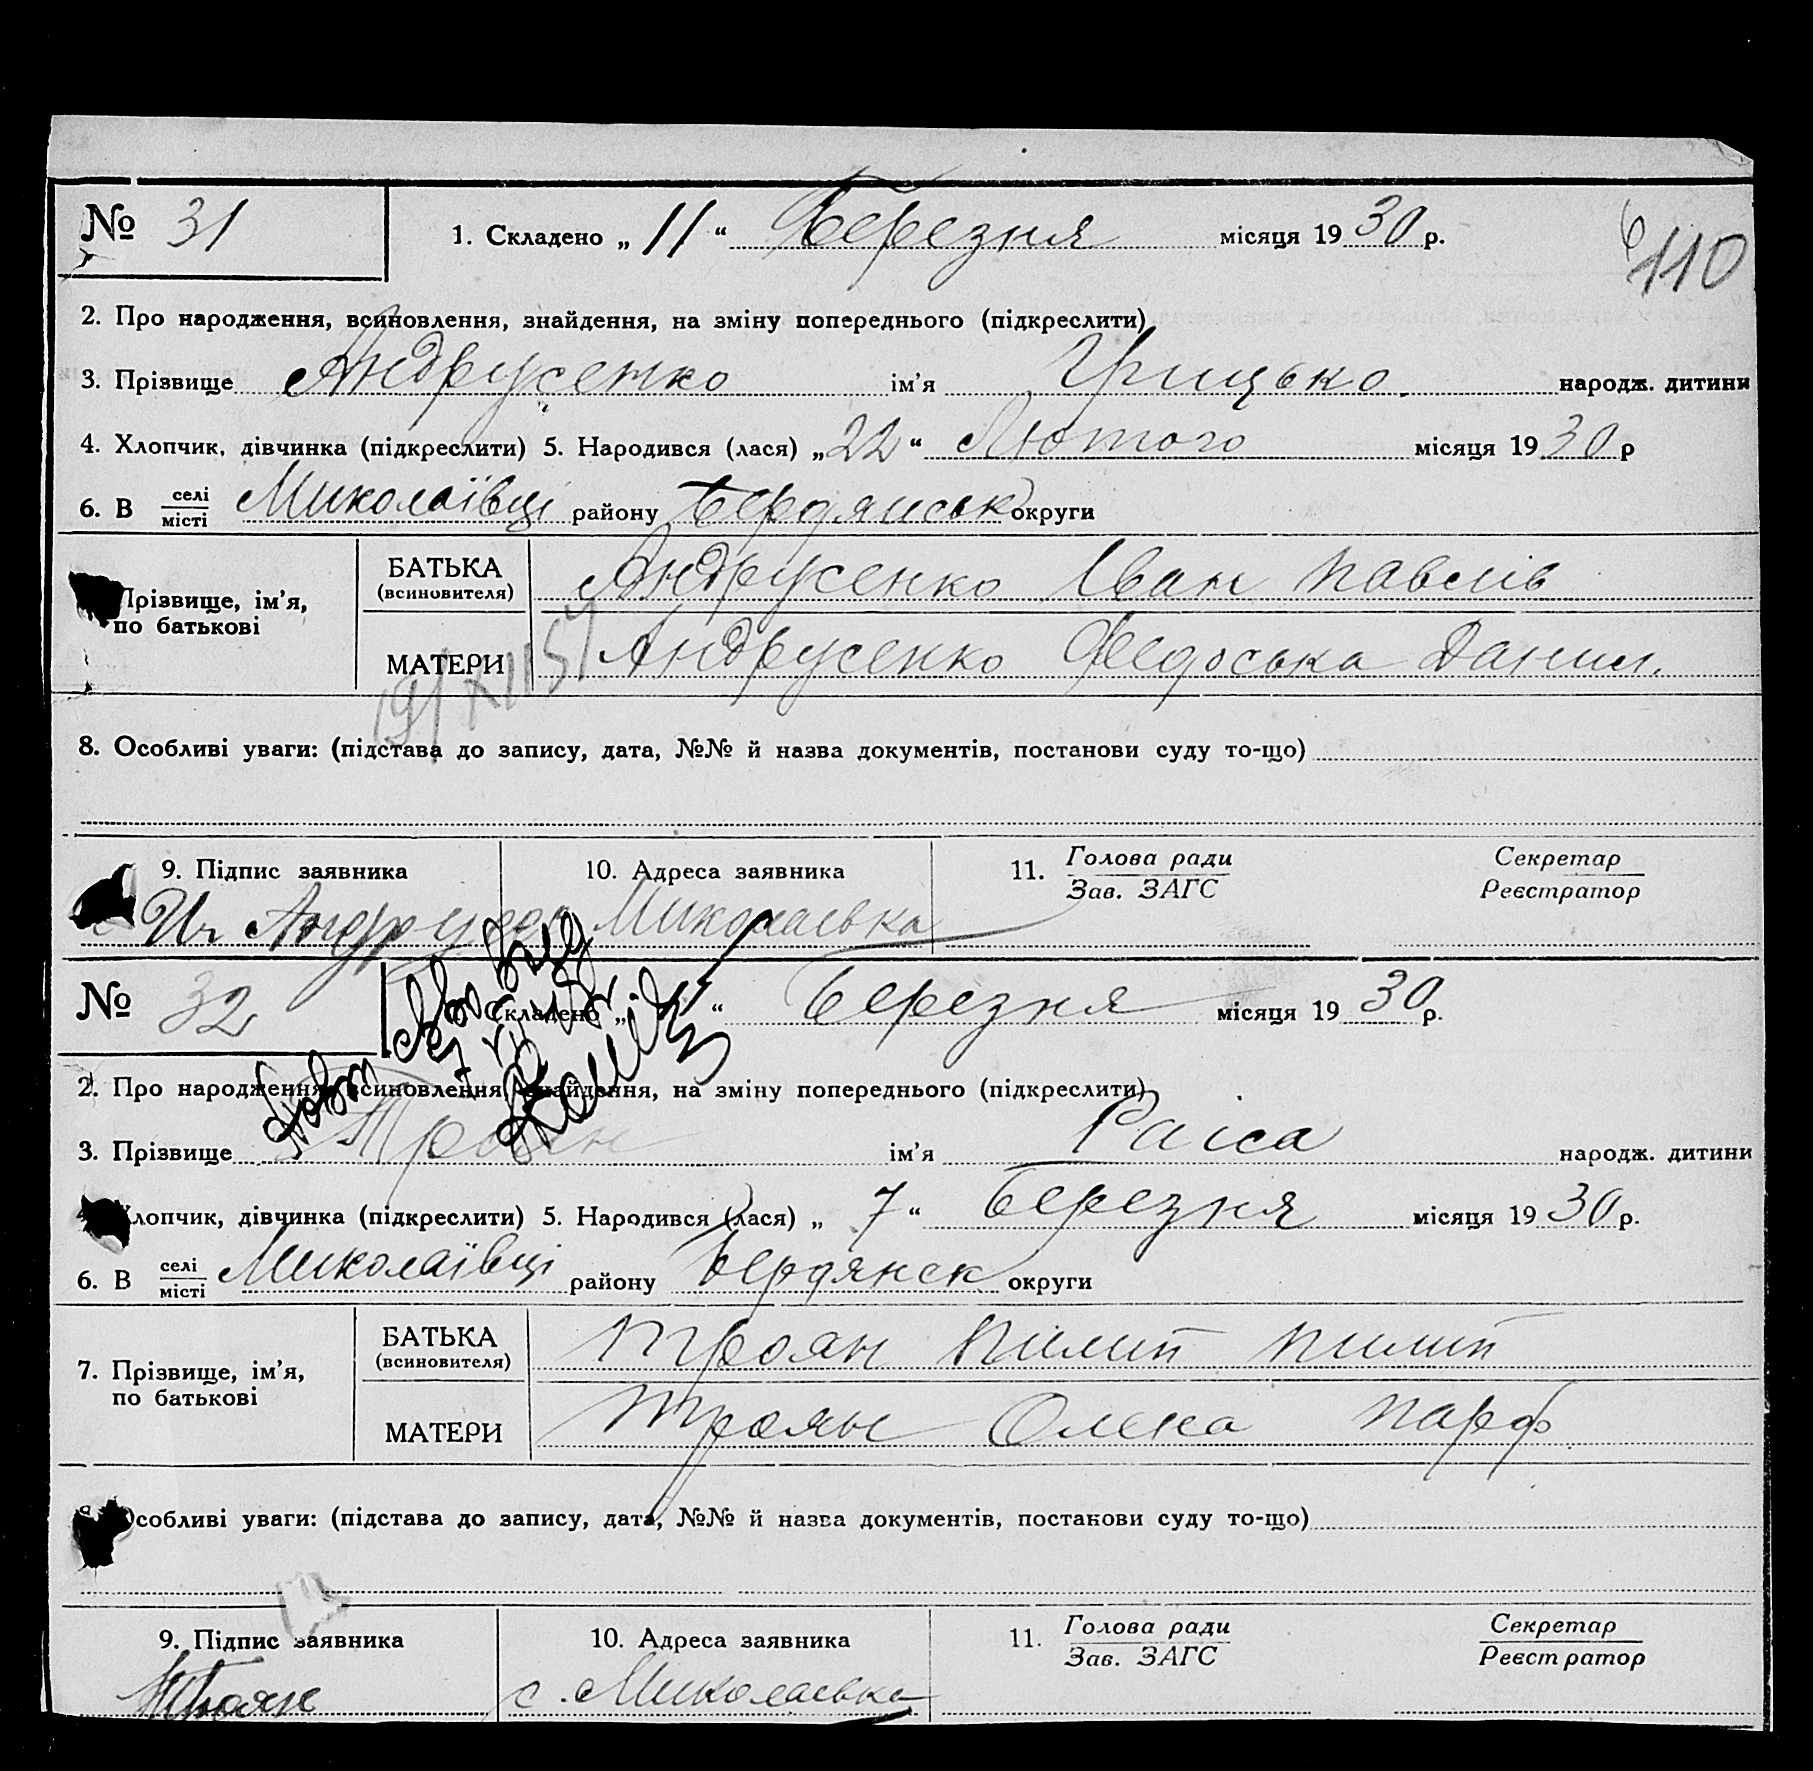 № 31
1. Складено „ 11 “ Березня місяця 19 30 р.
110
2. Про народження, всиновлення, знайдення, на зміну попереднього (підкреслити)
3. Прізвище Андрусенко ім’я Грицько народж. дитини
4. Хлопчик, дівчинка (підкреслити) 5. Народився (лася) „ 22 “ Лютого місяця 19 30 р
6. В селі/місті Миколаївці району Бердянськ округи
Прізвище, ім’я, по батькові
БАТЬКА (всиновителя) Андрусенко Іван Павлів
МАТЕРИ Андрусенко Федоська Данил.
8. Особливі уваги: (підстава до запису, дата, №№ й назва документів, постанови суду то-що)
9. Підпис заявника
10. Адреса заявника
11. Голова ради/Зав. ЗАГС
Секретар/Реєстратор
Миколаевка
№ 32
Складено „ “ Березня місяця 19 30 р.
2. Про народження, всиновлення, знайдення, на зміну попереднього (підкреслити)
3. Прізвище Троян ім’я Раіса народж. дитини
Хлопчик, дівчинка (підкреслити) 5. Народився (лася) „ 7 “ Березня місяця 19 30 р.
6. В селі/місті Миколаївці району Бердянск округи
7. Прізвище, ім’я, по батькові
БАТЬКА (всиновителя) Троян Пилип Пилип
МАТЕРИ Троян Олена Парф.
Особливі уваги: (підстава до запису, дата, №№ й назва документів, постанови суду то-що)
9. Підпис заявника
10. Адреса заявника
11. Голова ради/Зав. ЗАГС
Секретар/Реєстратор
Троян
с. Миколаевка